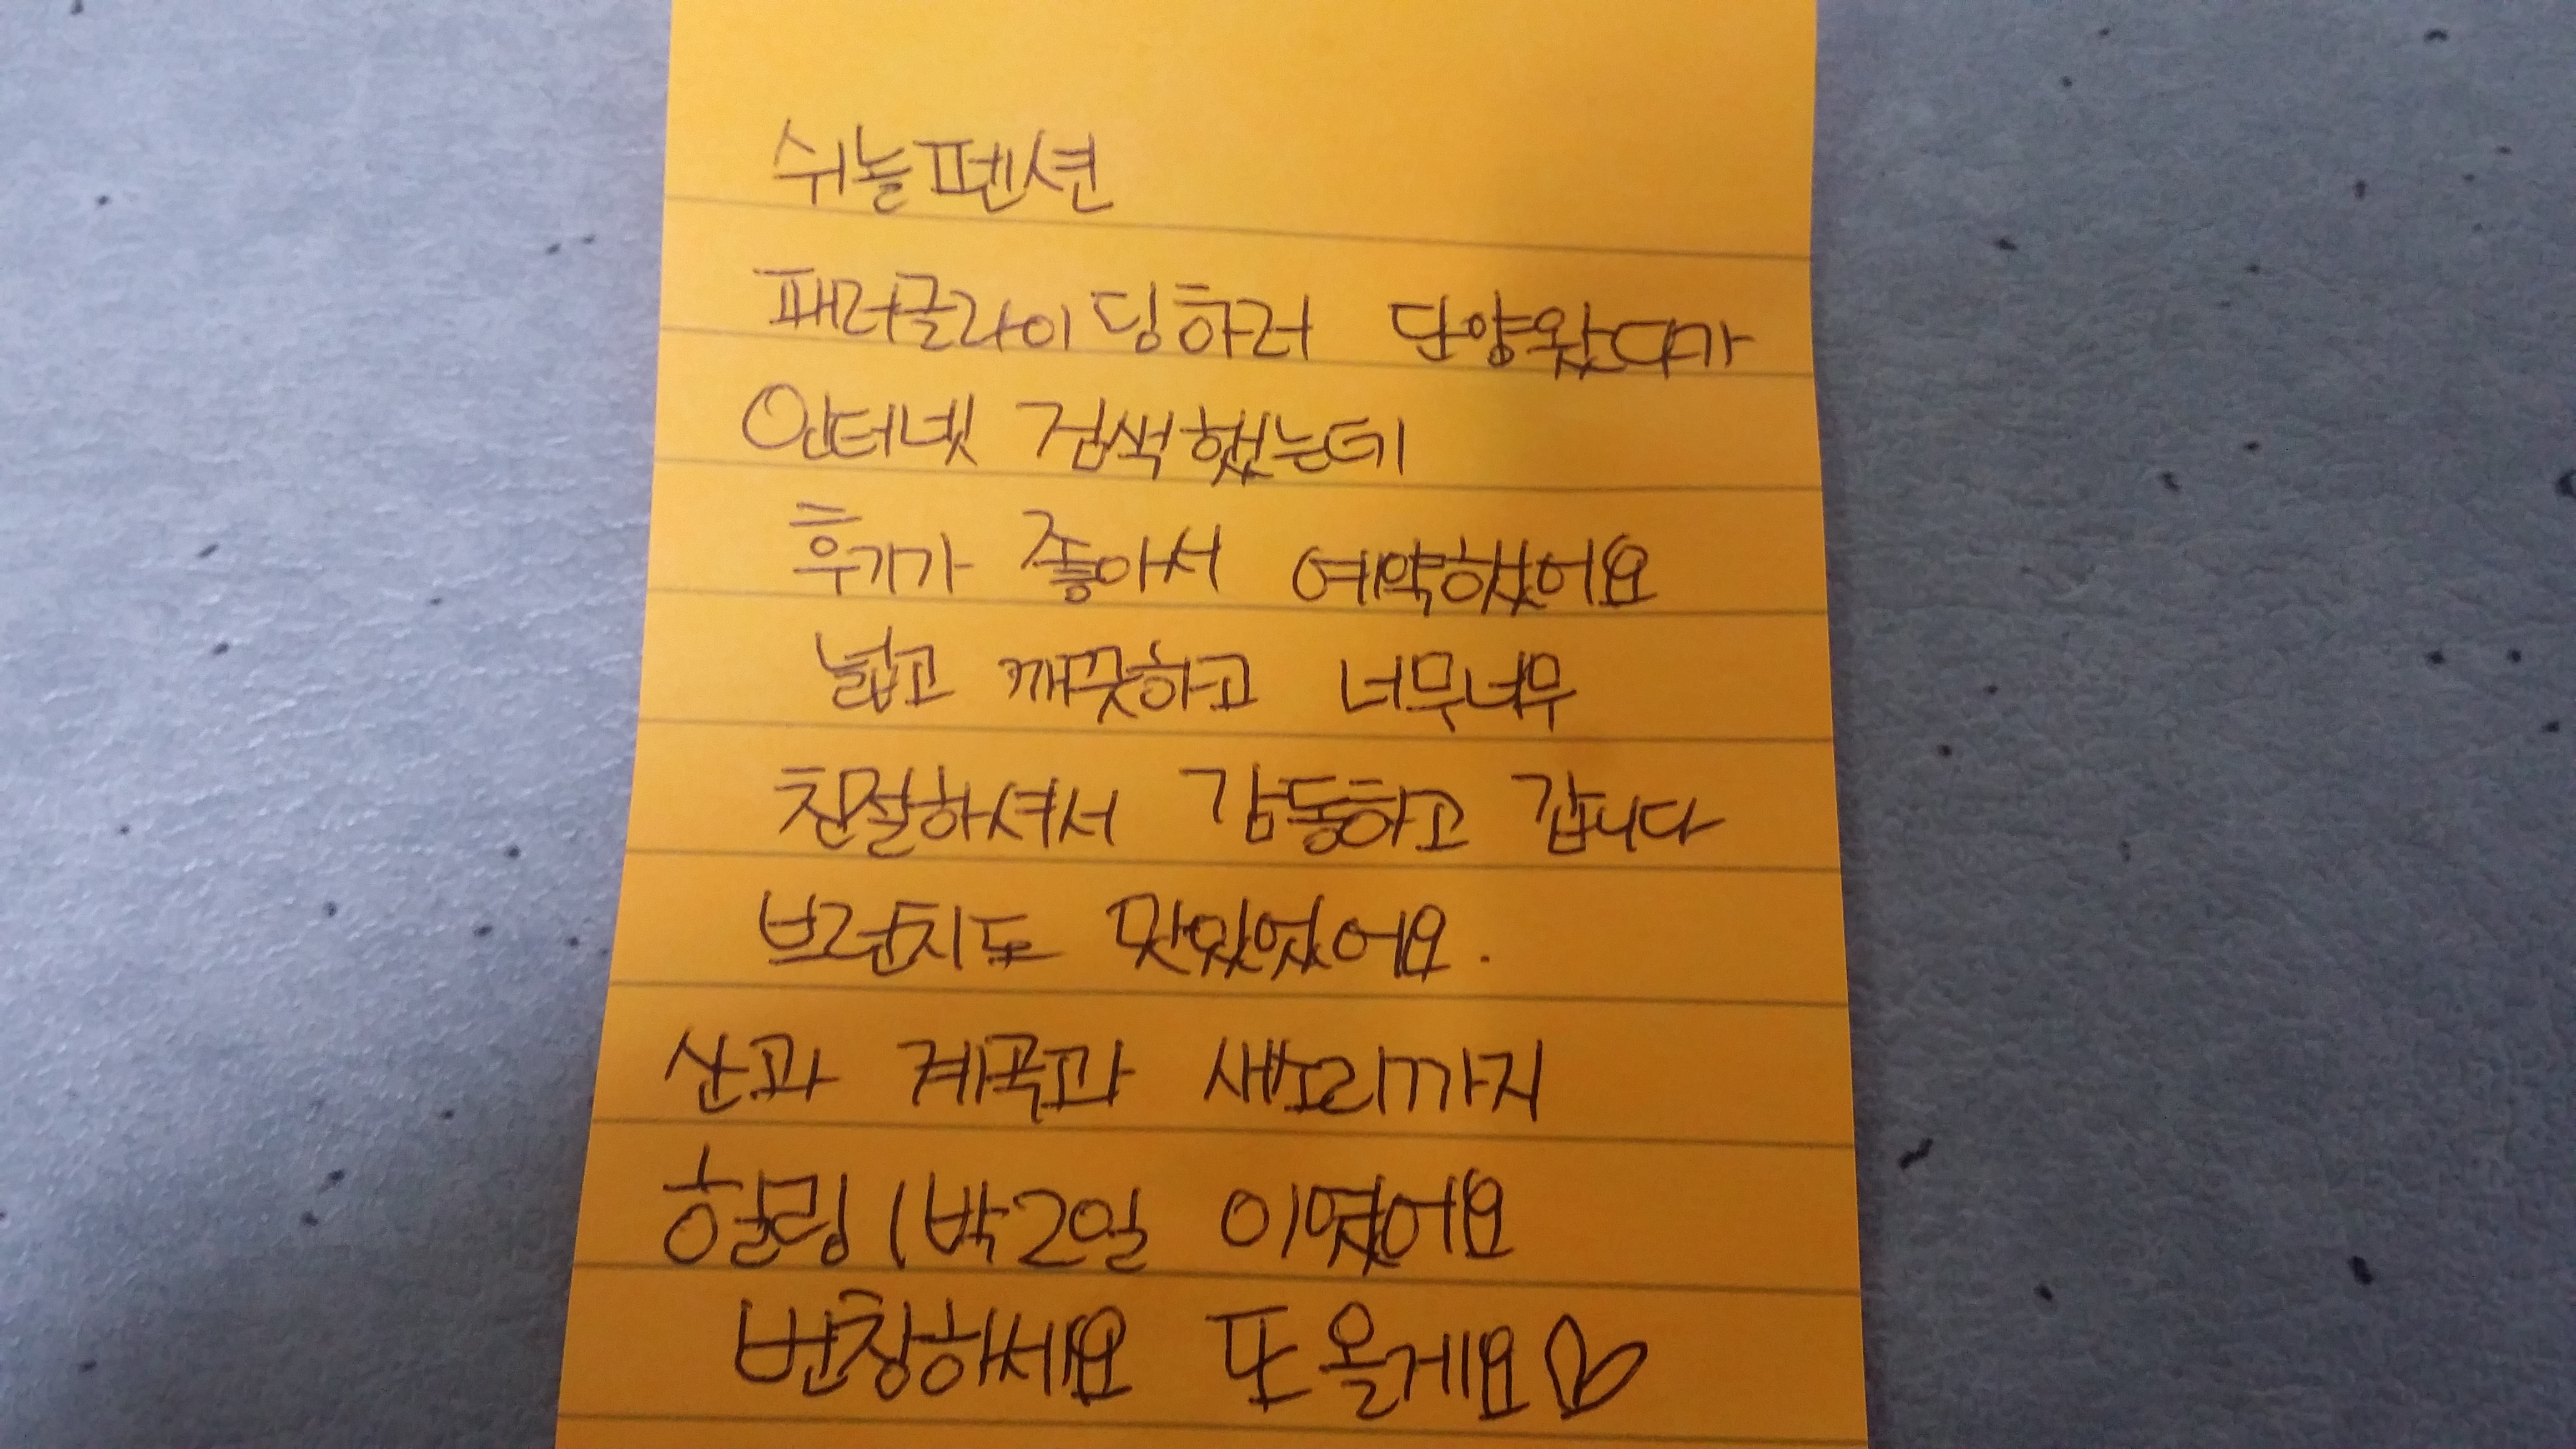 쉬놀펜션
패러글라이딩하러 단양왔다가
인터넷 검색했는데
후기가 좋아서 예약했어요
넓고 깨끗하고 너무너무
친절하셔서 감동하고 갑니다
브런치도 맛있었어요.
산과 계곡과 새소리까지
힐링 1박2일 이였어요
번창하세요 또 올게요♡